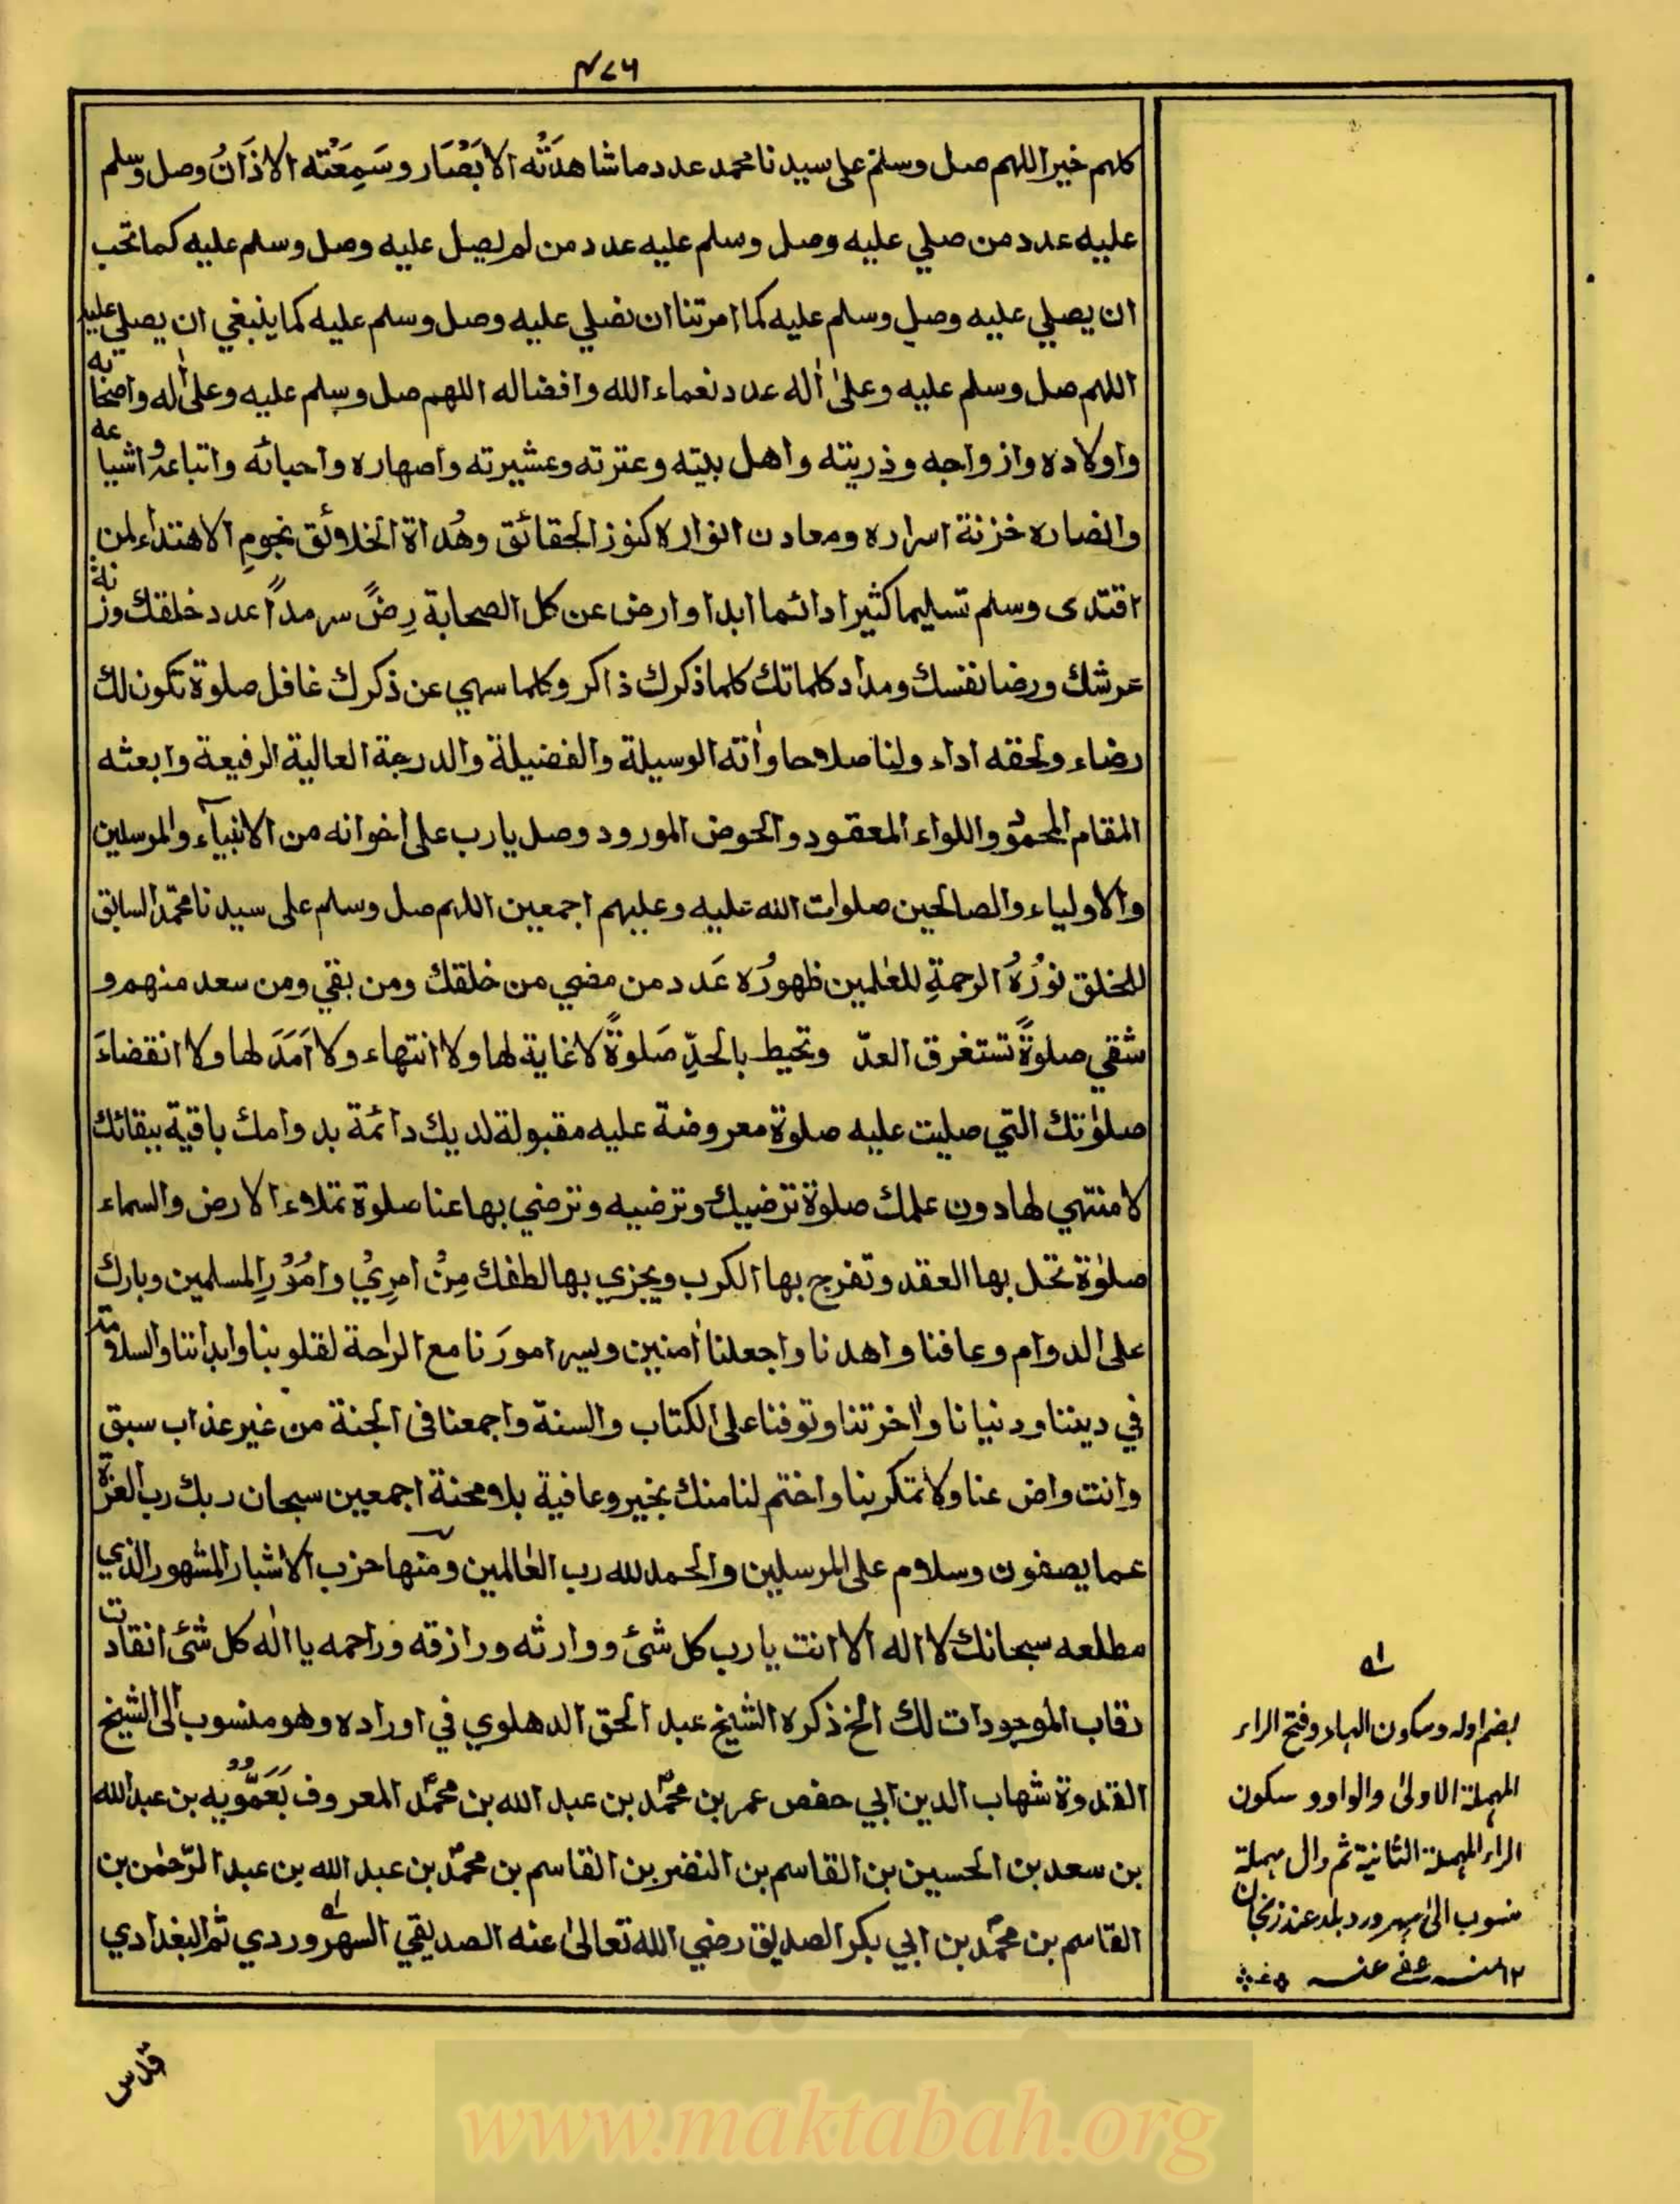 ٤٧٦
كلهم خير اللهم صل وسلم على سيدنا محمد عدد ما شاهدَتْه الابَصَار وسَمِعَتْه الاذَانُ وصل وسلم
عليه عدد من صلي عليه وصل وسلم عليه عدد من لم يصل عليه وصل وسلم عليه كما تحب
ان يصلي عليه وصل وسلم عليه كما امرتنا ان نصلي عليه وصل وسلم عليه كما ينبغي ان يصلي عليه
اللهم صل وسلم عليه وعلىٰ اٰله عدد نعماء الله وافضاله اللهم صل وسلم عليه وعلى اٰله واصحابه
واولاده وازواجه وذريته واهل بيته وعترته وعشيرته واصهاره واحبائه واتباعه واشياعه
وانصاره خزنة اسراره ومعادن انواره كنوز الحقائق وهُداة الخلائق نجومِ الاهتداء لمن
اقتدى وسلم تسليما كثيرا دائما ابدا وارض عن كل الصحابة رِضًى سرمداً عدد خلقك وزنة
عرشك ورضا نفسك ومداد كلماتك كلما ذكرك ذاكر وكلما سهي عن ذكرك غافل صلوة تكون لك
رضاء ولحقه اداء ولنا صلاحا واٰته الوسيلة والفضيلة والدرجة العالية الرفيعة وابعثه
المقام المحمود واللواء المعقود والحوض المورود وصل يا رب على اخوانه من الانبيآء والمرسلين
والاولياء والصالحين صلوات الله عليه وعليهم اجمعين اللهم صل وسلم على سيدنا محمد السابق
للخلق نورُهُ الرحمةِ للعٰلمين ظهورُه عَدد من مضي من خلقك ومن بقي ومن سعد منهم و
شقي صلوةً تستغرق العدّ وتحيط بالحدِّ صَلوةً لا غاية لها ولا انتهاء ولا اَمَدَ لها ولا انقضاءَ
صلوٰتك التي صليت عليه صلوة معروضة عليه مقبولة لديك دائمة بدوامك باقية ببقائك
لا منتهي لها دون علمك صلوة ترضيك وترضيه وترضي بها عنا صلوة تملاء الارض والسماء
صلوٰة تحل بها العقد وتفرج بها الكرب ويجزي بها لطفك مِنْ امرِيْ وامُوْرِ المسلمين وبارك
على الدوام وعافنا واهدنا واجعلنا اٰمنين ويسر امورَنا مع الراحة لقلوبنا وابداننا والسلامة
في ديننا ودنيانا واٰخرتنا وتوفنا على الكتاب والسنة واجمعنا فى الجنة من غير عذاب سبق
وانت راض عنا ولا تمكر بنا واختم لنا منك بخير وعافية بلا محنة اجمعين سبحان ربك رب العزة
عما يصفون وسلام على المرسلين والحمد لله رب العٰالمين ومنها حزب الاشبار المشهور الذي
مطلعه سبحانك لا اله الا انت يا رب كل شئ ووارثه ورازقه وراحمه يا اله كل شئ انقادت
رقاب الموجودات لك الخ ذكره الشيخ عبد الحق الدهلوي في اوراده وهو منسوب الى الشيخ
القدوة شهاب الدين ابي حفص عمر بن محمّد بن عبد الله بن محمّد المعروف بَعَمُّوْيَه بن عبد الله
بن سعد بن الحسين بن القاسم بن النضر بن القاسم بن محمّد بن عبد الله بن عبد الرّحمٰن بن
القاسم بن محمّد بن ابي بكر الصديق رضي الله تعالىٰ عنه الصديقي السهروردي ثم البغدادي
بضم اوله وسكون الهاء وفتح الراء
المهملة الاولىٰ والواو وسكون
الراء المهملة الثانية ثم دال مهملة
منسوب الىٰ سهرورد بلد عند زنجان
١٢ منه عفي عنه
قدس
www.maktabah.org